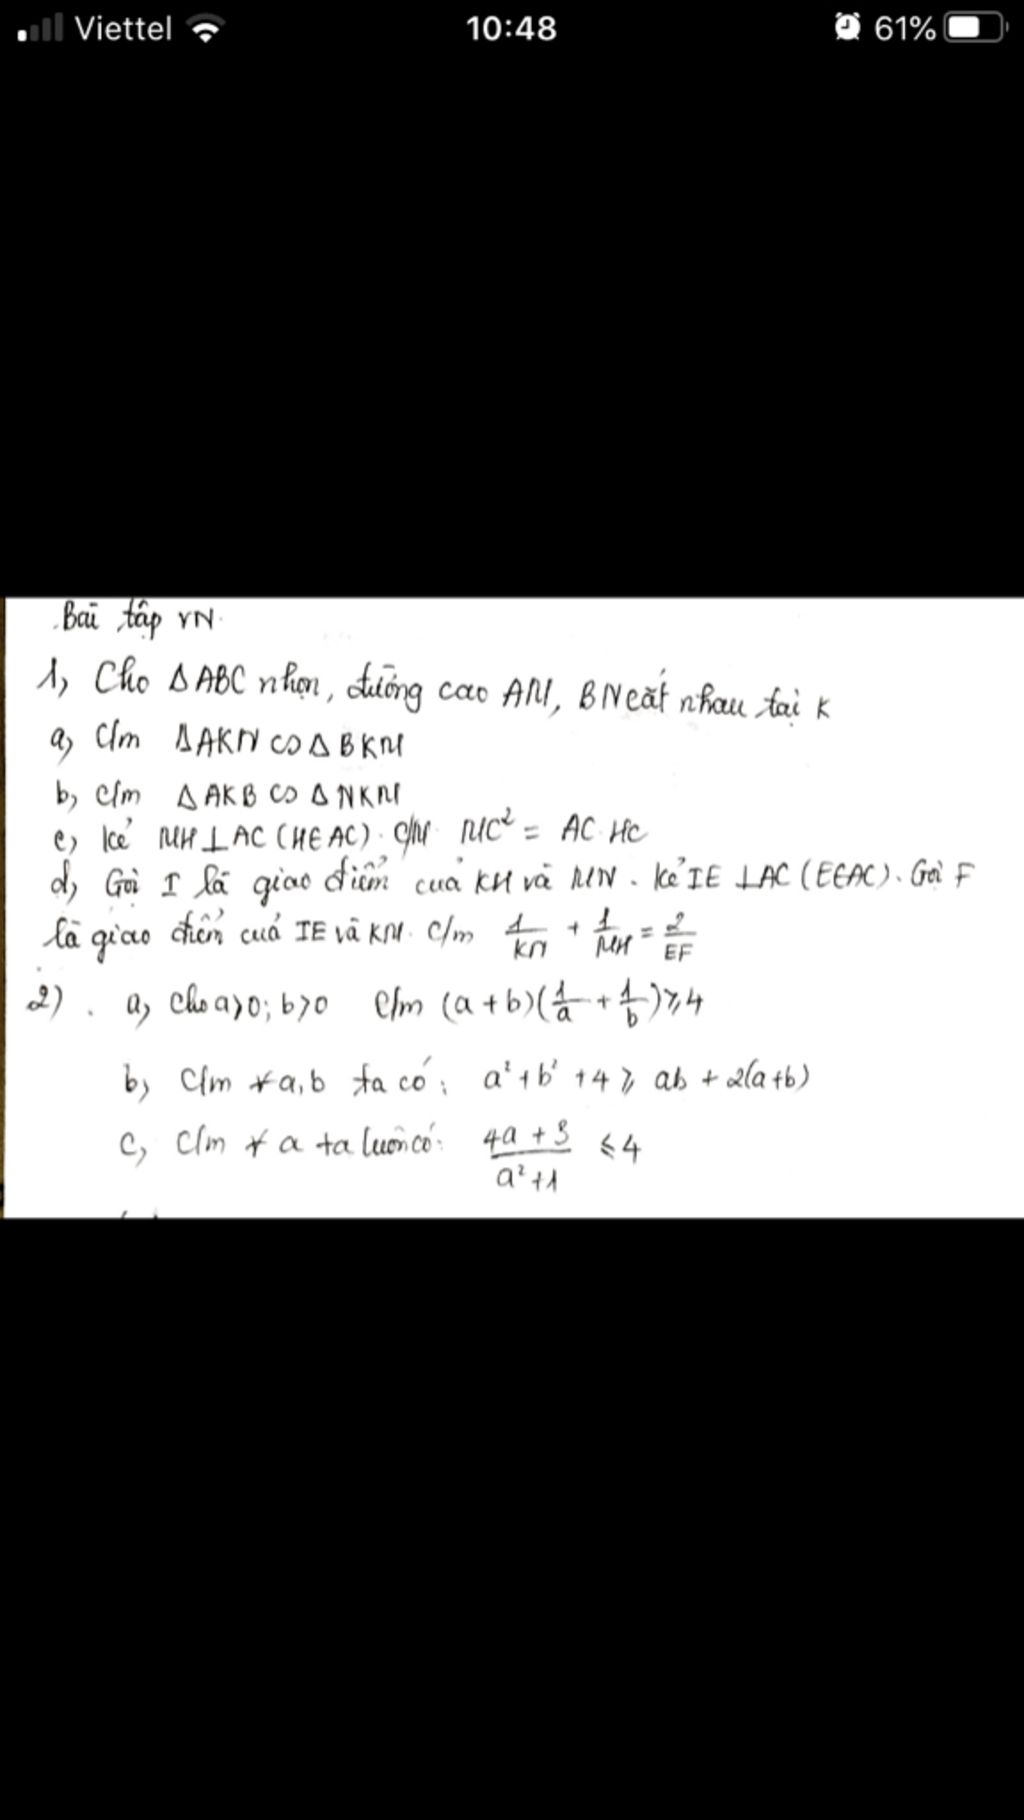 Viettel 10:48 61%
Bài tập VN.
1, Cho ΔABC nhọn, đường cao AM, BN cắt nhau tại K
a, C/m ΔAKN ∽ ΔBKM
b, C/m ΔAKB ∽ ΔNKM
c, Kẻ MH⊥AC (H∈AC). C/M MC² = AC.HC
d, Gọi I là giao điểm của KH và MN. Kẻ IE ⊥AC (E∈AC). Gọi F
là giao điểm của IE và KM. C/m 1/KN + 1/MH = 2/EF
2). a, Cho a>0; b>0 C/m (a+b)(1/a + 1/b) ⩾ 4
b, C/m ∀ a,b ta có: a²+b²+4 ⩾ ab + 2(a+b)
c, C/m ∀ a ta luôn có: (4a+3)/(a²+1) ⩽ 4